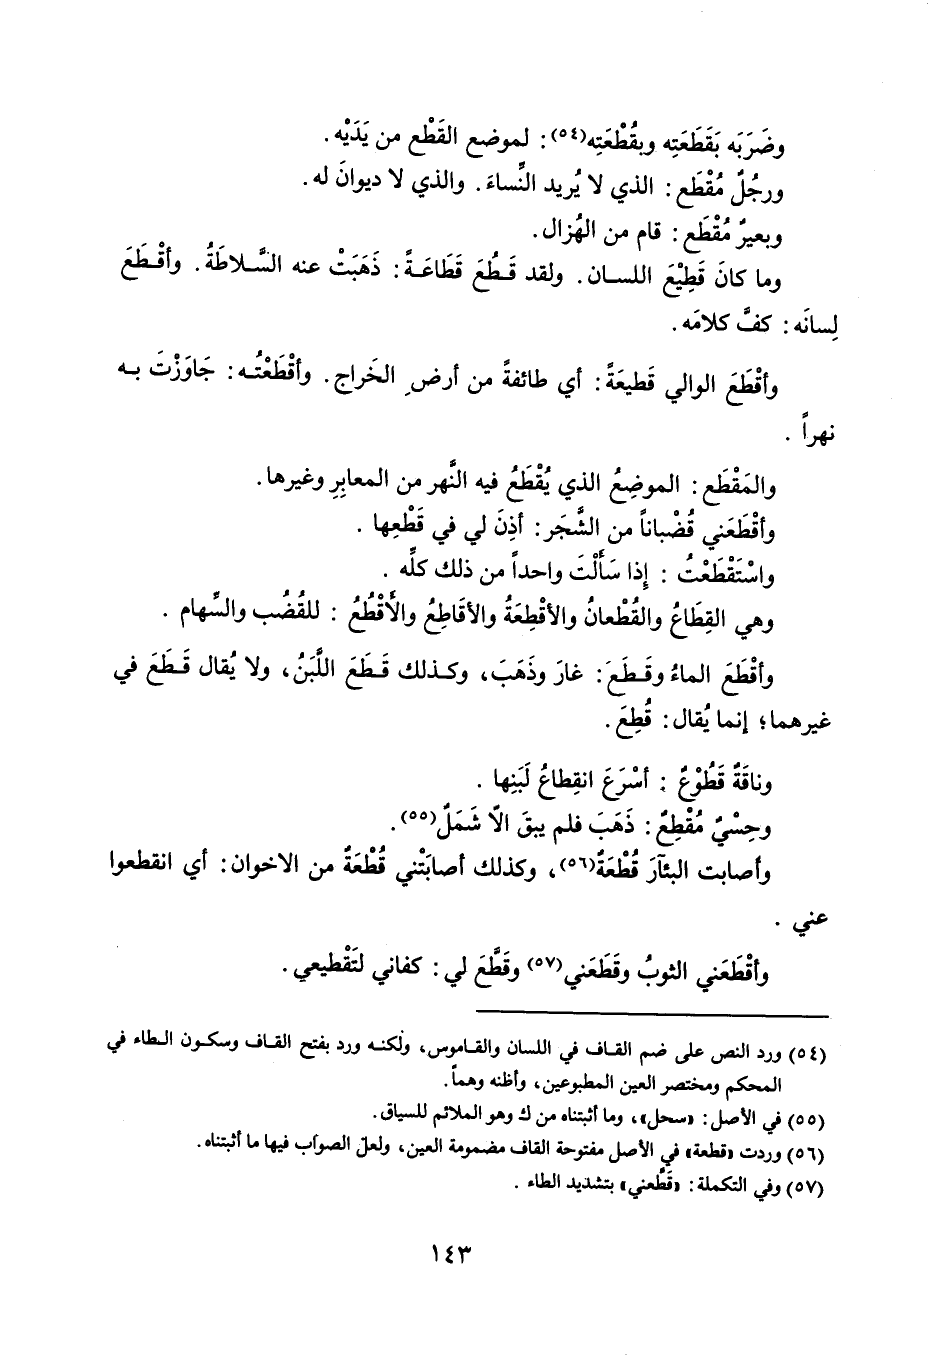 وضَرَبَه بَقَطَعَتِه وبقُطْعَتِه(٥٤): لموضع القَطْع من يَدَيْه.
ورجُلٌ مُقْطَع: الذي لا يُريد النِّساءَ. والذي لا ديوانَ له.
وبعيرٌ مُقْطَع: قام من الهُزال.
وما كانَ قَطِيْعَ اللسان. ولقد قَطُعَ قَطَاعَةً: ذَهَبَتْ عنه السَّلاطَةُ. وأقْطَعَ
لِسانَه: كفَّ كلامَه.
وأقْطَعَ الوالي قَطيعَةً: أي طائفةً من أرضِ الخَراج. وأقْطَعْتُه: جَاوَزْتَ به
نهراً .
والمَقْطَع: الموضِعُ الذي يُقْطَعُ فيه النَّهر من المعابِرِ وغيرها.
وأقْطَعَني قُضْباناً من الشَّجَر: أذِنَ لي في قَطْعِها .
واسْتَقْطَعْتُ : إذا سَأَلْتَ واحداً من ذلك كلِّه .
وهي القِطَاعُ والقُطْعانُ والأقْطِعَةُ والأقَاطِعُ والأَقْطُعُ : للقُضُب والسِّهام .
وأقْطَعَ الماءُ وقَطَعَ: غارَ وذَهَبَ، وكذلك قَطَعَ اللَّبَنُ، ولا يُقال قَطَعَ في
غيرهما؛ إنما يُقال: قُطِعَ.
وناقَةٌ قَطُوْعٌ : أسْرَعَ انقِطاعُ لَبَنِها .
وحِسْيٌ مُقْطِعٌ: ذَهَبَ فلم يبقَ الّا شَمَلٌ(٥٥).
وأصابت البئآرَ قُطْعَةٌ(٥٦)، وكذلك أصابَتْني قُطْعَةٌ من الاخوان: أي انقطعوا
عني .
وأقْطَعَني الثوبُ وقَطَعَني(٥٧) وقَطَّعَ لي: كفاني لتَقْطيعي.
(٥٤) ورد النص على ضم القاف في اللسان والقاموس، ولكنه ورد بفتح القاف وسكون الطاء في
المحكم ومختصر العين المطبوعين، وأظنه وهماً.
(٥٥) في الأصل: «سحل»، وما أثبتناه من ك وهو الملائم للسياق.
(٥٦) وردت «قطعة» في الأصل مفتوحة القاف مضمومة العين، ولعلّ الصواب فيها ما أثبتناه.
(٥٧) وفي التكملة: «قَطَّعني» بتشديد الطاء .
١٤٣